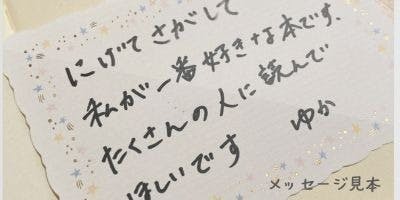 にげて さがして
私が一番好きな本です.
たくさんの人に読んで
ほしいです ゆか
メッセージ見本